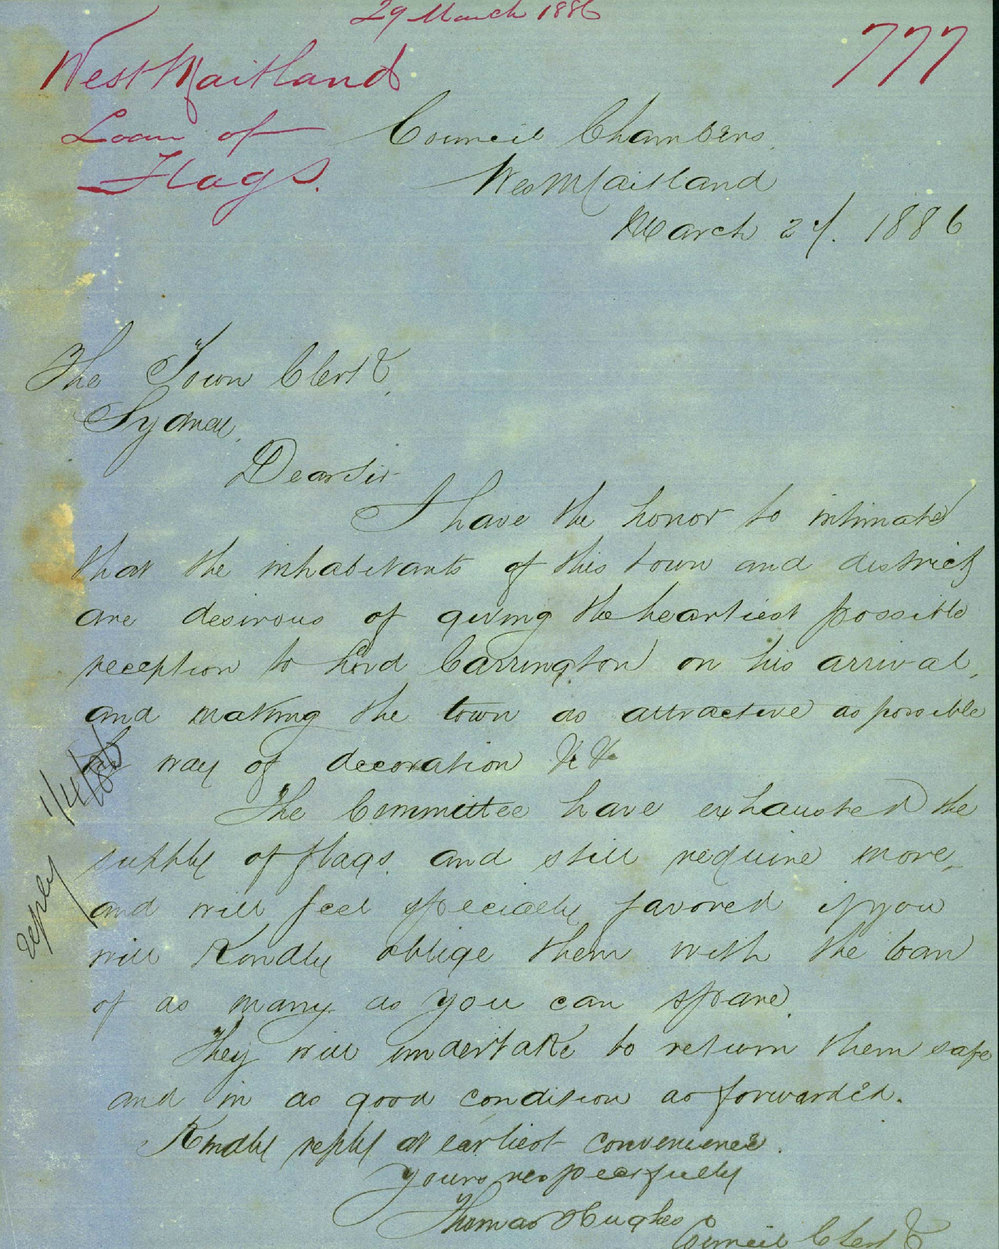 29 March 1886
777
West Maitland
Loan of
Flags.
Council Chambers.
West Maitland
March 27. 1886
The Town Clerk
Sydney.
Dear Sir
I have the honor to intimate
that the inhabitants of this town and district
are desirous of giving the heartiest possible
reception to Lord Carrington on his arrival,
and making the town as attractive as possible
by way of decoration &c &c
The Committee have exhausted the
supply of flags. and still require more,
and will feel specially favored if you
will Kindly oblige them with the loan
of as many as you can spare.
They will undertake to return them safe
and in as good condition as forwarded.
Kindly reply at earliest convenience.
Yours respectfully
Thomas Hughes
Council Clerk
reply 1/4/86